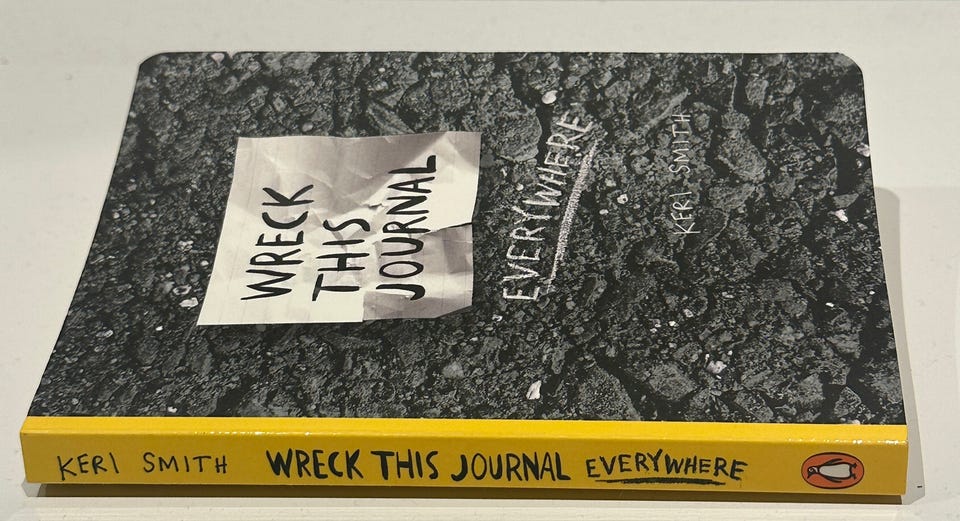 WRECK
THIS
JOURNAL
EVERYWHERE
KERI SMITH
KERI SMITH WRECK THIS JOURNAL EVERYWHERE